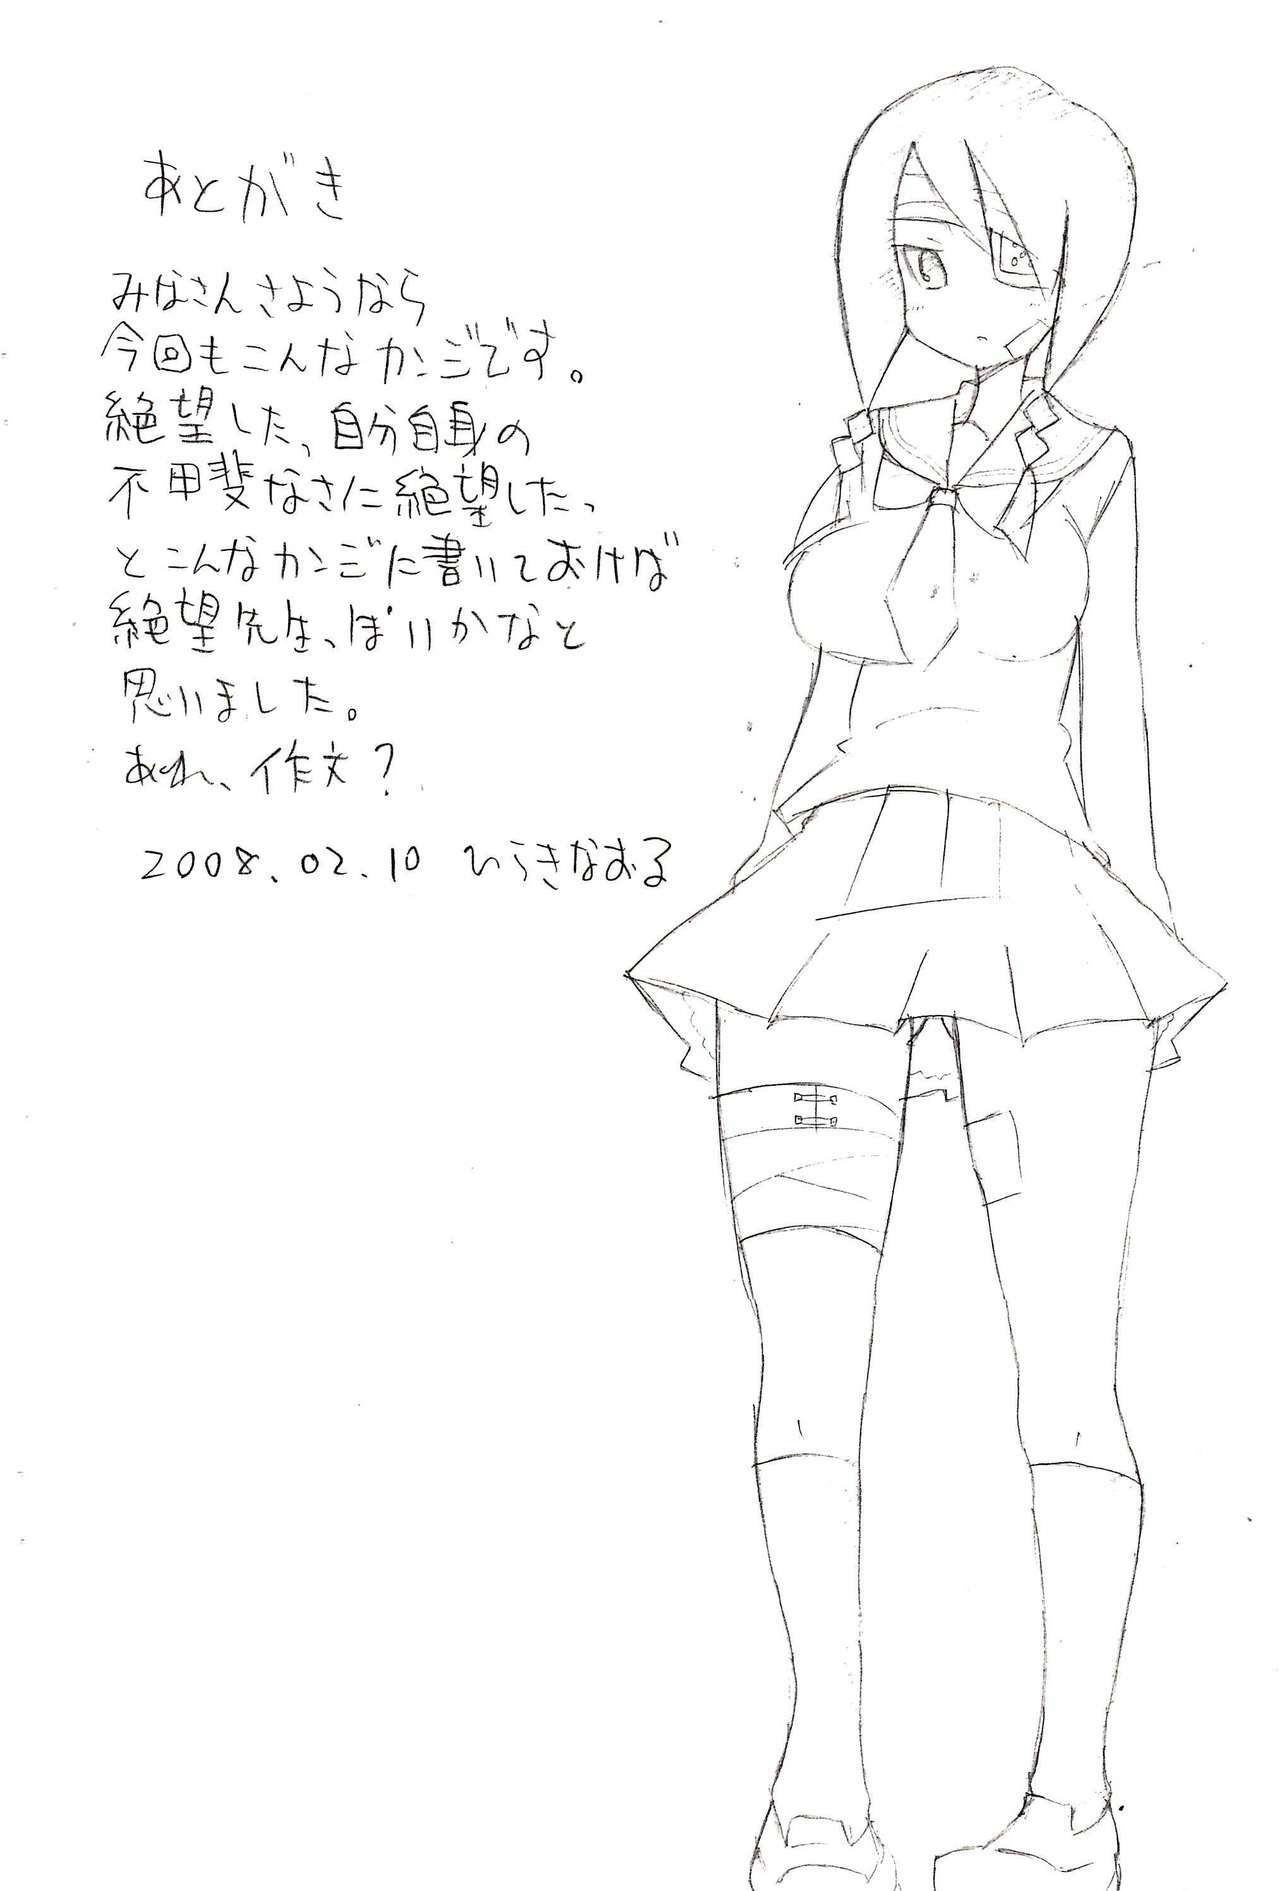 あとがき
みなさんさようなら
今回もこんなカンジです。
絶望した、自分自身の
不甲斐なさに絶望したっ
とこんなカンジに書いておけば
絶望先生っぽいかなと
思いました。
あれ、作文?
2008.02.10 ひらきなおる